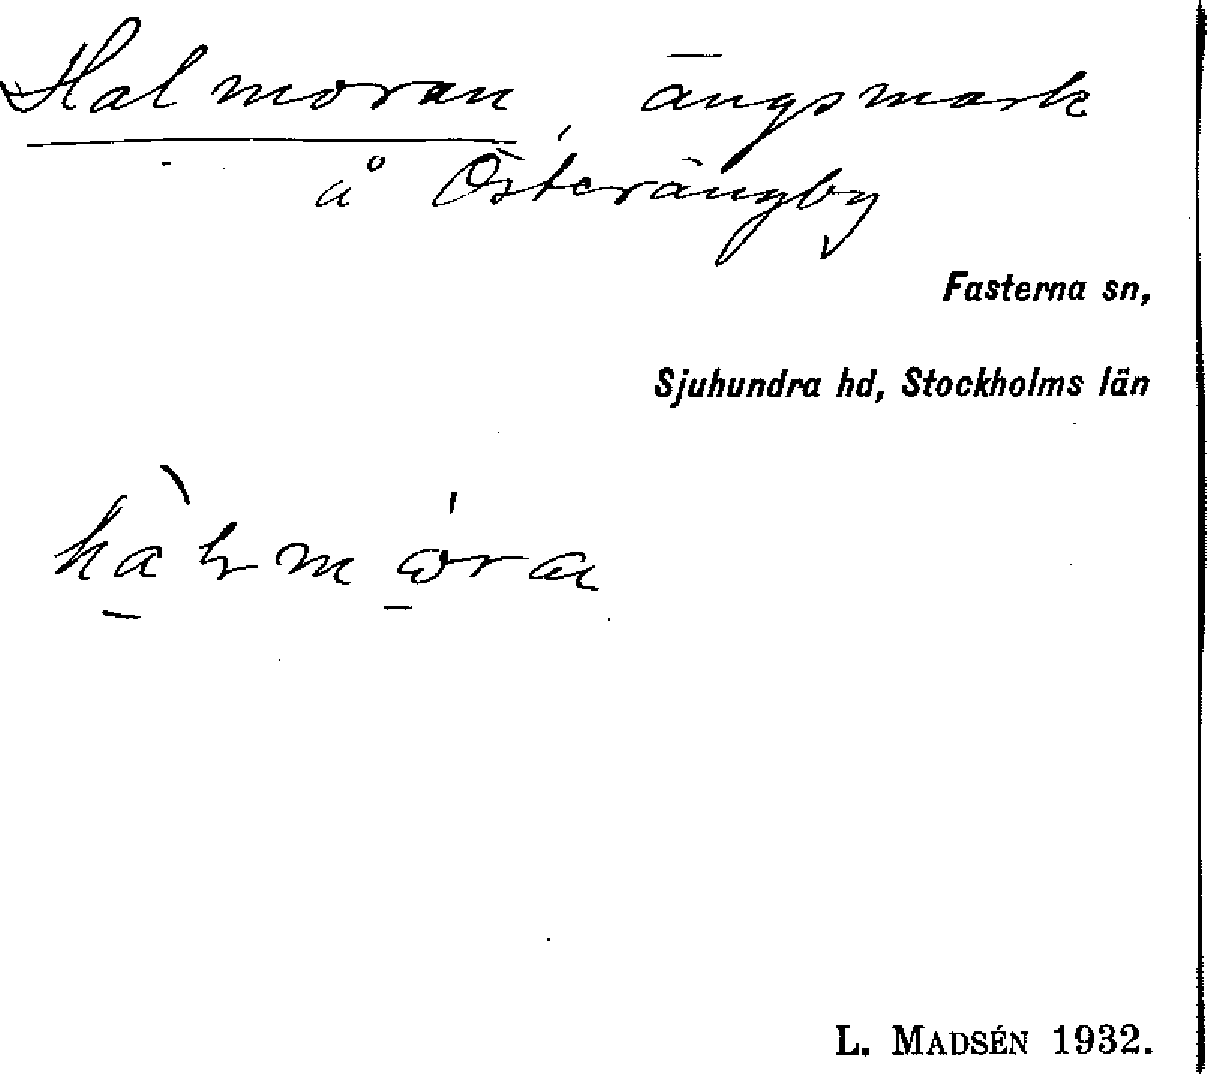 Halmoran, ängsmark
å Österängby
Fasterna sn,
Sjuhundra hd, Stockholms län
L. MADSÉN 1932.